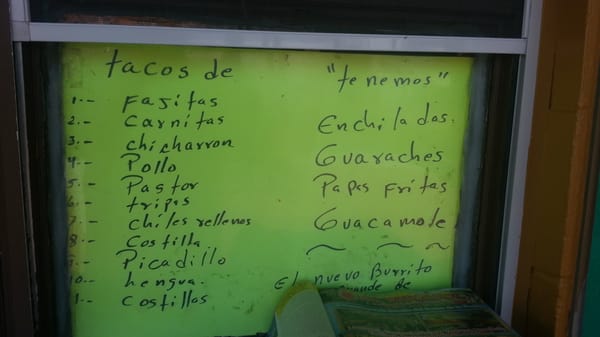 tacos de
1.- Fajitas
2.- Carnitas
3.- chicharron
4.- Pollo
5.- Pastor
6.- tripas
7.- chiles rellenos
8.- Costilla
9.- Picadillo
10.- Lengua.
Costillos
"te nemos"
Enchiladas.
Guaraches
Papas Fritas
Guacamole
El nuevo Burrito
Grande de